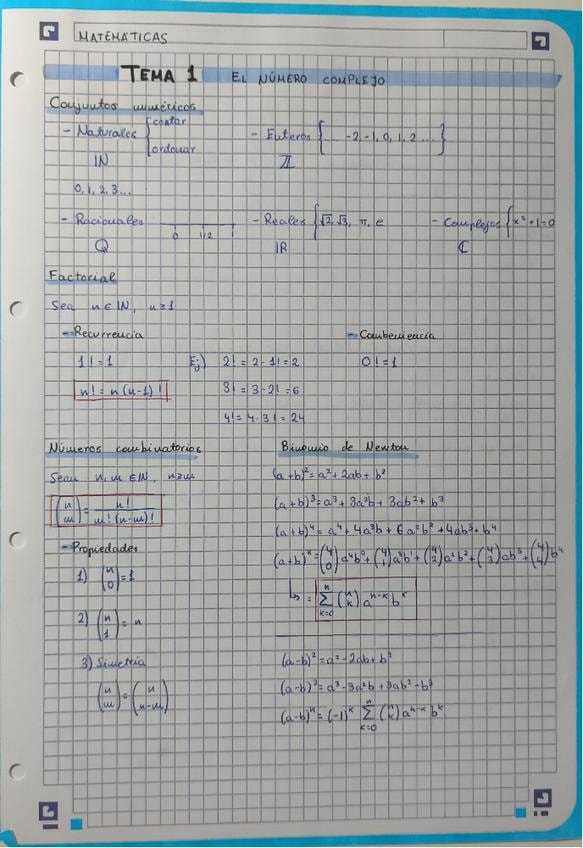 MATEMÁTICAS
TEMA 1 EL NÚMERO COMPLEJO
Conjuntos numéricos
- Naturales { contar
ordenar
ℕ
0, 1, 2, 3...
- Enteros { ... -2, -1, 0, 1, 2 ... }
ℤ
- Racionales
0 1/2 1
Q
- Reales { √2, √3, π, e
ℝ
- Complejos { x² + 1 = 0
ℂ
Factorial
Sea n ∈ ℕ, n ≥ 1
- Recurrencia
1! = 1
n! = n (n-1)!
Ej) 2! = 2 · 1! = 2
3! = 3 · 2! = 6
4! = 4 · 3! = 24
- Conbeniencia
0! = 1
Números combinatorios
Sean n, m ∈ ℕ, n ≥ m
(n m) = n! / m! (n-m)!
- Propiedades
1) (n 0) = 1
2) (n 1) = n
3) Simetría
(n m) = (n n-m)
Binomio de Newton
(a+b)² = a² + 2ab + b²
(a+b)³ = a³ + 3a²b + 3ab² + b³
(a+b)⁴ = a⁴ + 4a³b + 6a²b² + 4ab³ + b⁴
(a+b)ⁿ = (4 0) a⁴b⁰ + (4 1) a³b¹ + (4 2) a²b² + (4 3) ab³ + (4 4) b⁴
↳ = Σ k=0 n (n k) aⁿ⁻ᵏ bᵏ
(a-b)² = a² - 2ab + b²
(a-b)³ = a³ - 3a²b + 3ab² - b³
(a-b)ⁿ = (-1)ᵏ Σ k=0 n (n k) aⁿ⁻ᵏ bᵏ